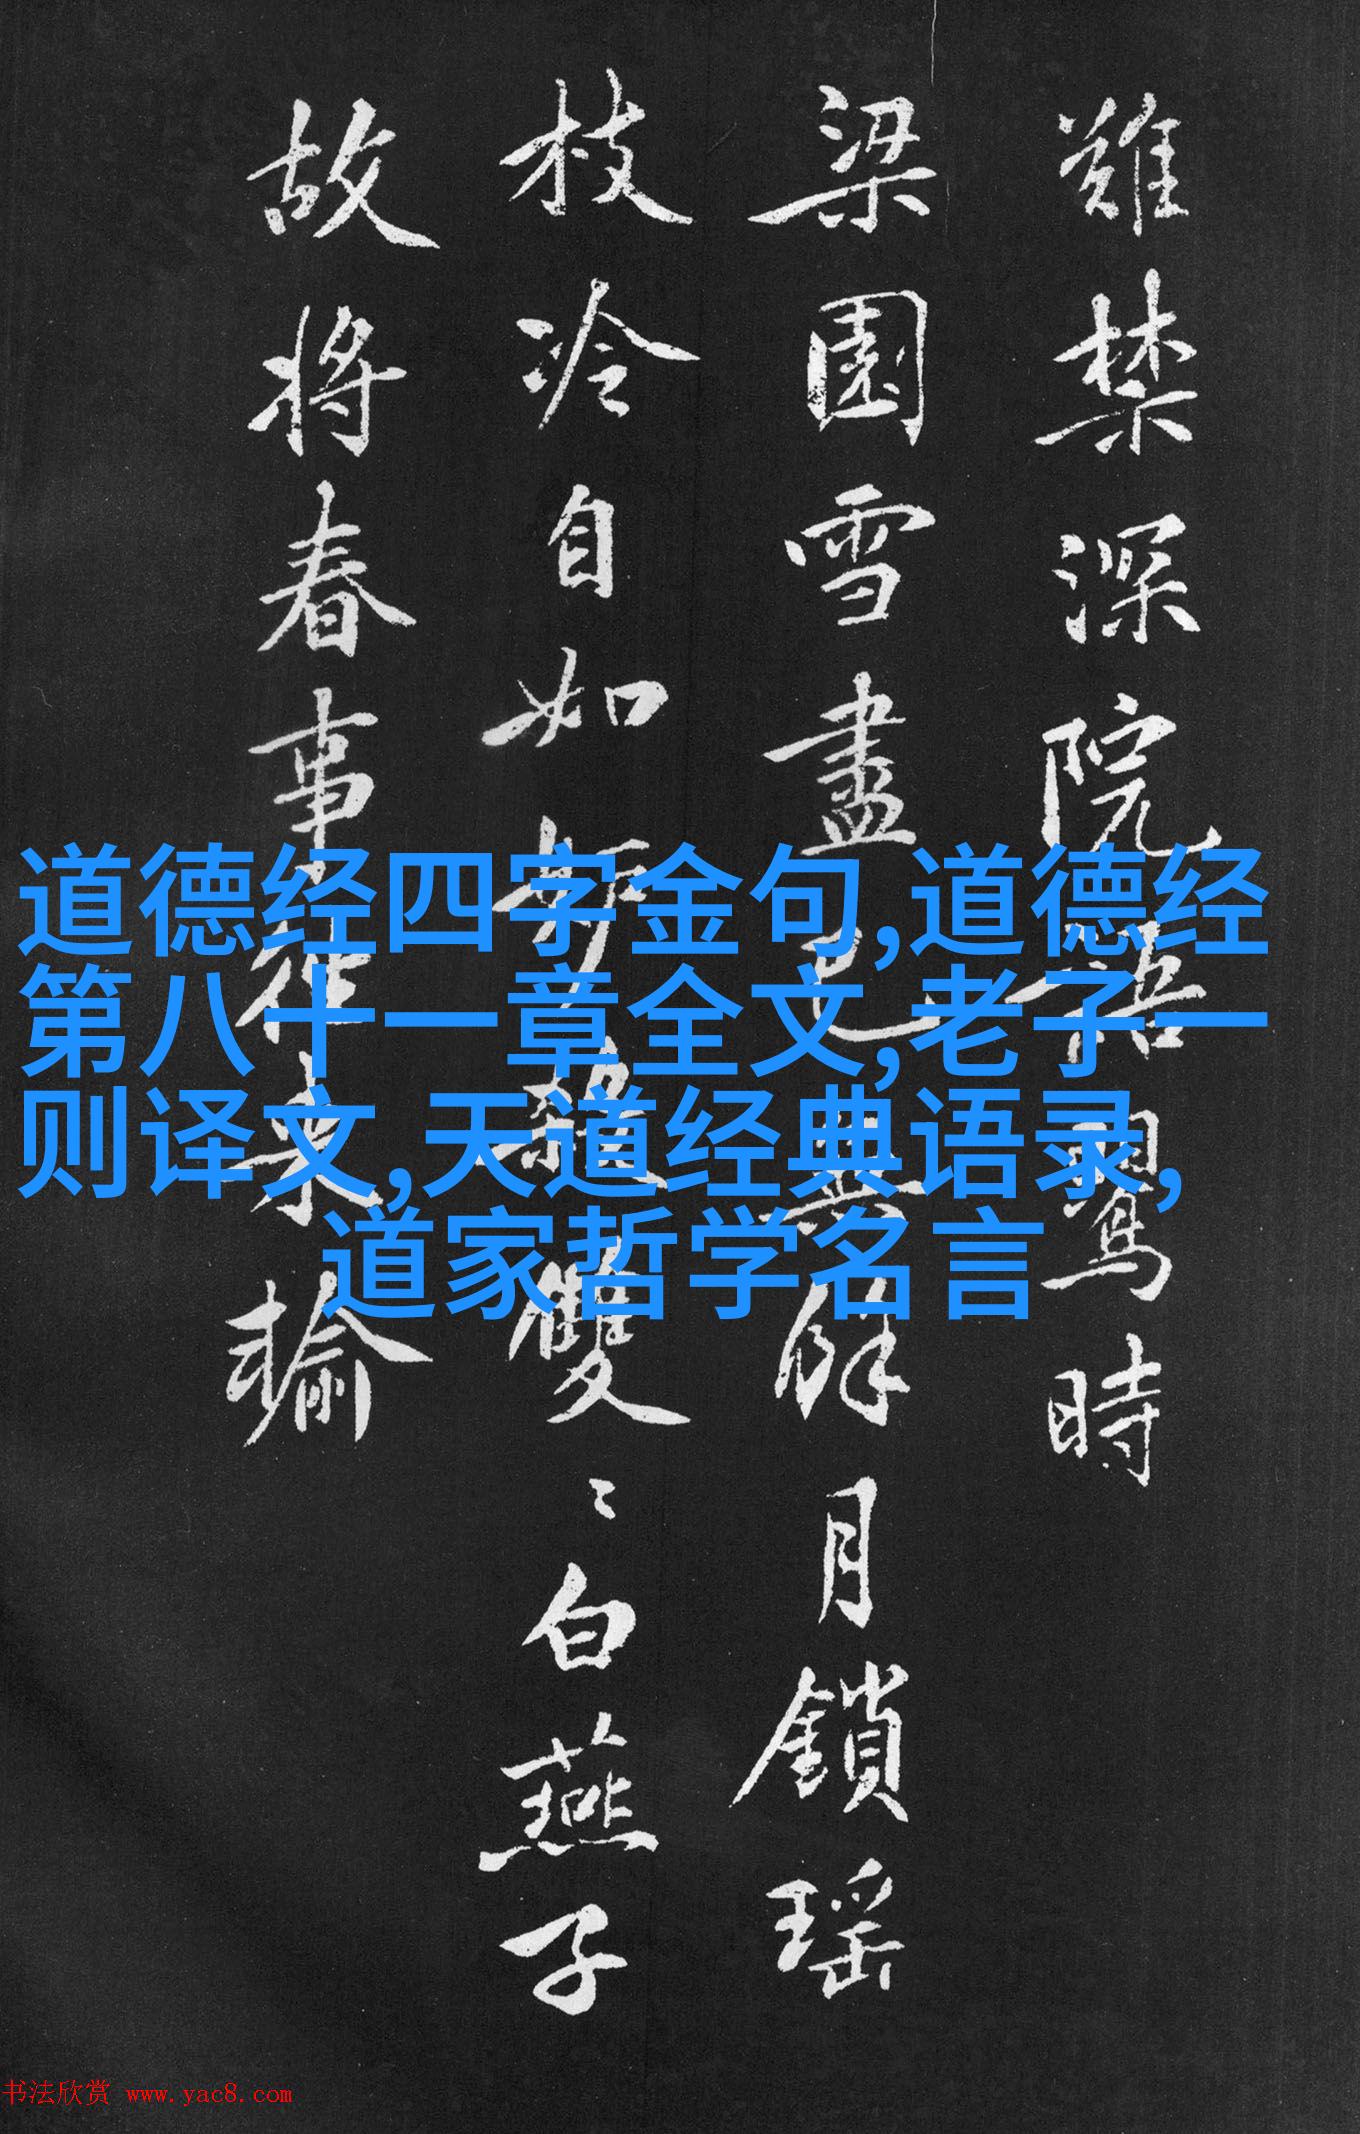 難禁深院語鶯時
梁園雪盡已無餘月鎖瑶
枝冷自如妒殺雙〻白燕子
故将春事往来輸
道德经四字金句,道德经
第八十一章全文,老子一
则译文,天道经典语录,
道家哲学名言
书法欣赏 www.yac8.com